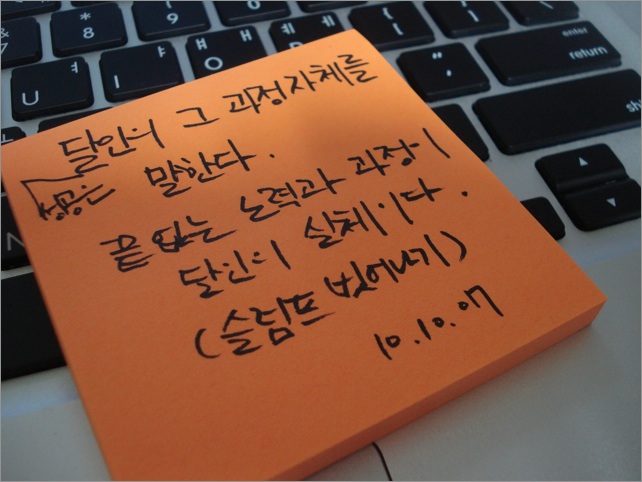 * 8
( 9
) 0
&
7
U ㅕ
I ㅑ
ㅐ
ㅔ
{ [
} ]
enter
return
달인의 그 과정자체를
성공은 말한다.
끝 없는 노력과 과정이
달인의 실체이다.
(슬럼프 벗어나기)
10.10.07